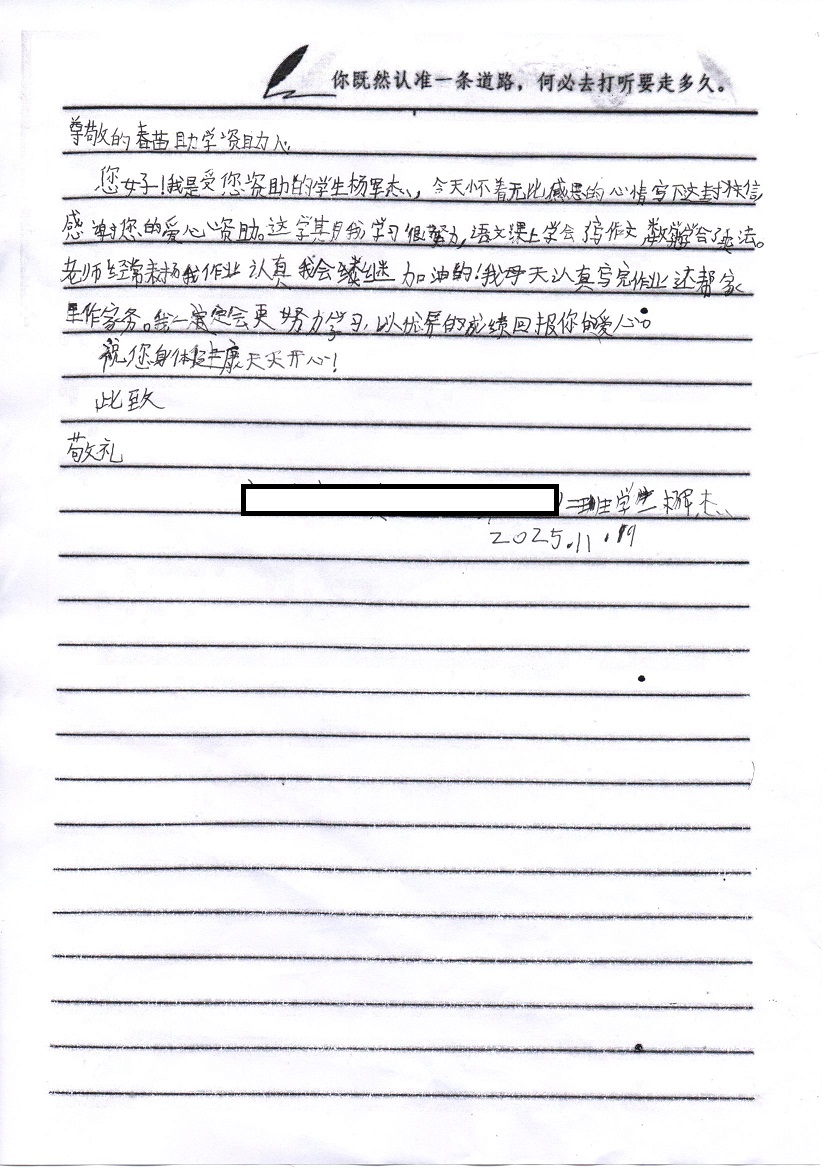 你既然认准一条道路，何必去打听要走多久。
尊敬的春苗助学资助人
您好！我是受您资助的学生杨军杰，今天怀着无比感恩的心情写下这封信，
感谢您的爱心资助。这学期我学习很努力，语文课上学会写作文 数学学会了乘法。
老师经常表扬我作业认真 我会继续加油的！我每天认真写完作业还帮家
里作家务。我一定会更努力学习，以优异的成绩回报你的爱心。
祝您身体健康天天开心！
此致
敬礼
二班学生杨军杰
2025.11.19